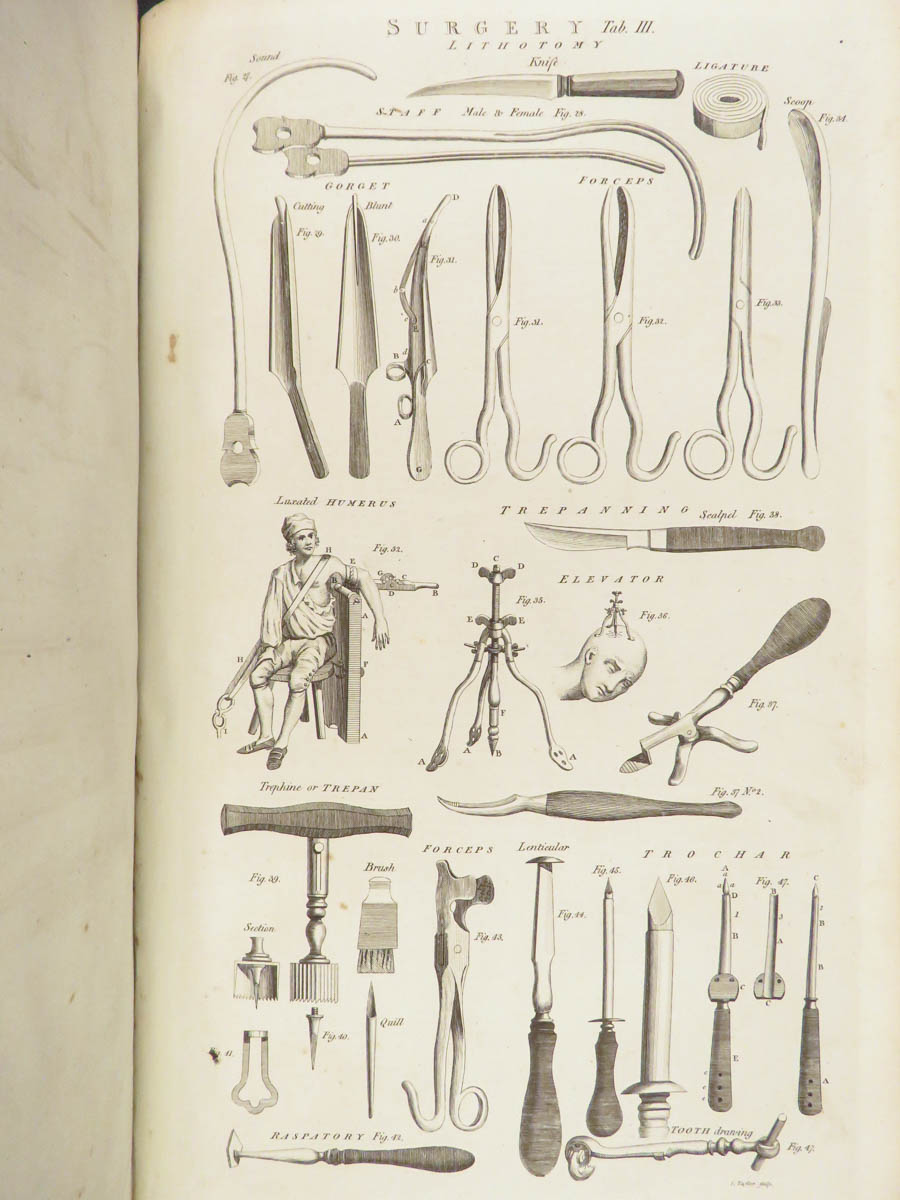 SURGERY Tab. III.
LITHOTOMY
Sound
Fig. 27.
Knife
LIGATURE
STAFF Male & Female Fig. 28.
Scoop
Fig. 34.
GORGET
FORCEPS
Cutting
Fig. 29.
Blunt
Fig. 30.
D
a
Fig. 31.
b
c
E
d
B
C
A
G
Fig. 31.
Fig. 32.
Fig. 33.
Luxated HUMERUS
TREPANNING
Scalpel Fig. 38.
Fig. 52.
H
E
G
C
B
D
B
A
H
F
I
A
D C D
Fig. 35.
E E
F
A A B A
ELEVATOR
Fig. 36.
Fig. 37.
Trephine or TREPAN
Fig. 37 No. 2.
FORCEPS
Lenticular
TROCHAR
Fig. 39.
Brush
Fig. 43.
Fig. 44.
Fig. 45.
Fig. 46.
A
a a
D
1
B
C
E
e
e
e
Fig. 47.
B
3
A
C
C
2
B
B
A
Section
Fig. 40.
Quill
41.
RASPATORY Fig. 42.
TOOTH drawing
Fig. 47.
Taylor sculp.